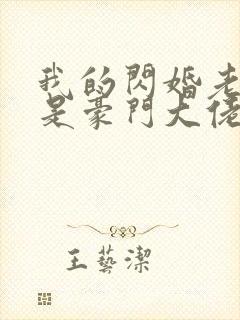 我的閃婚老
是豪門大佬
王藝潔